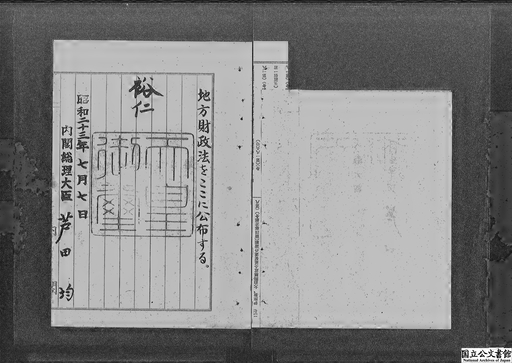 地方財政法をここに公布する。
裕仁
天皇御璽
昭和二十三年七月七日
内閣総理大臣 芦田均
国立公文書館
National Archives of Japan